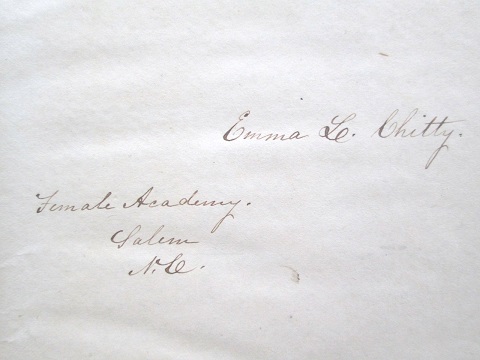 Emma L. Chitty.
Female Academy.
Salem
N.C.